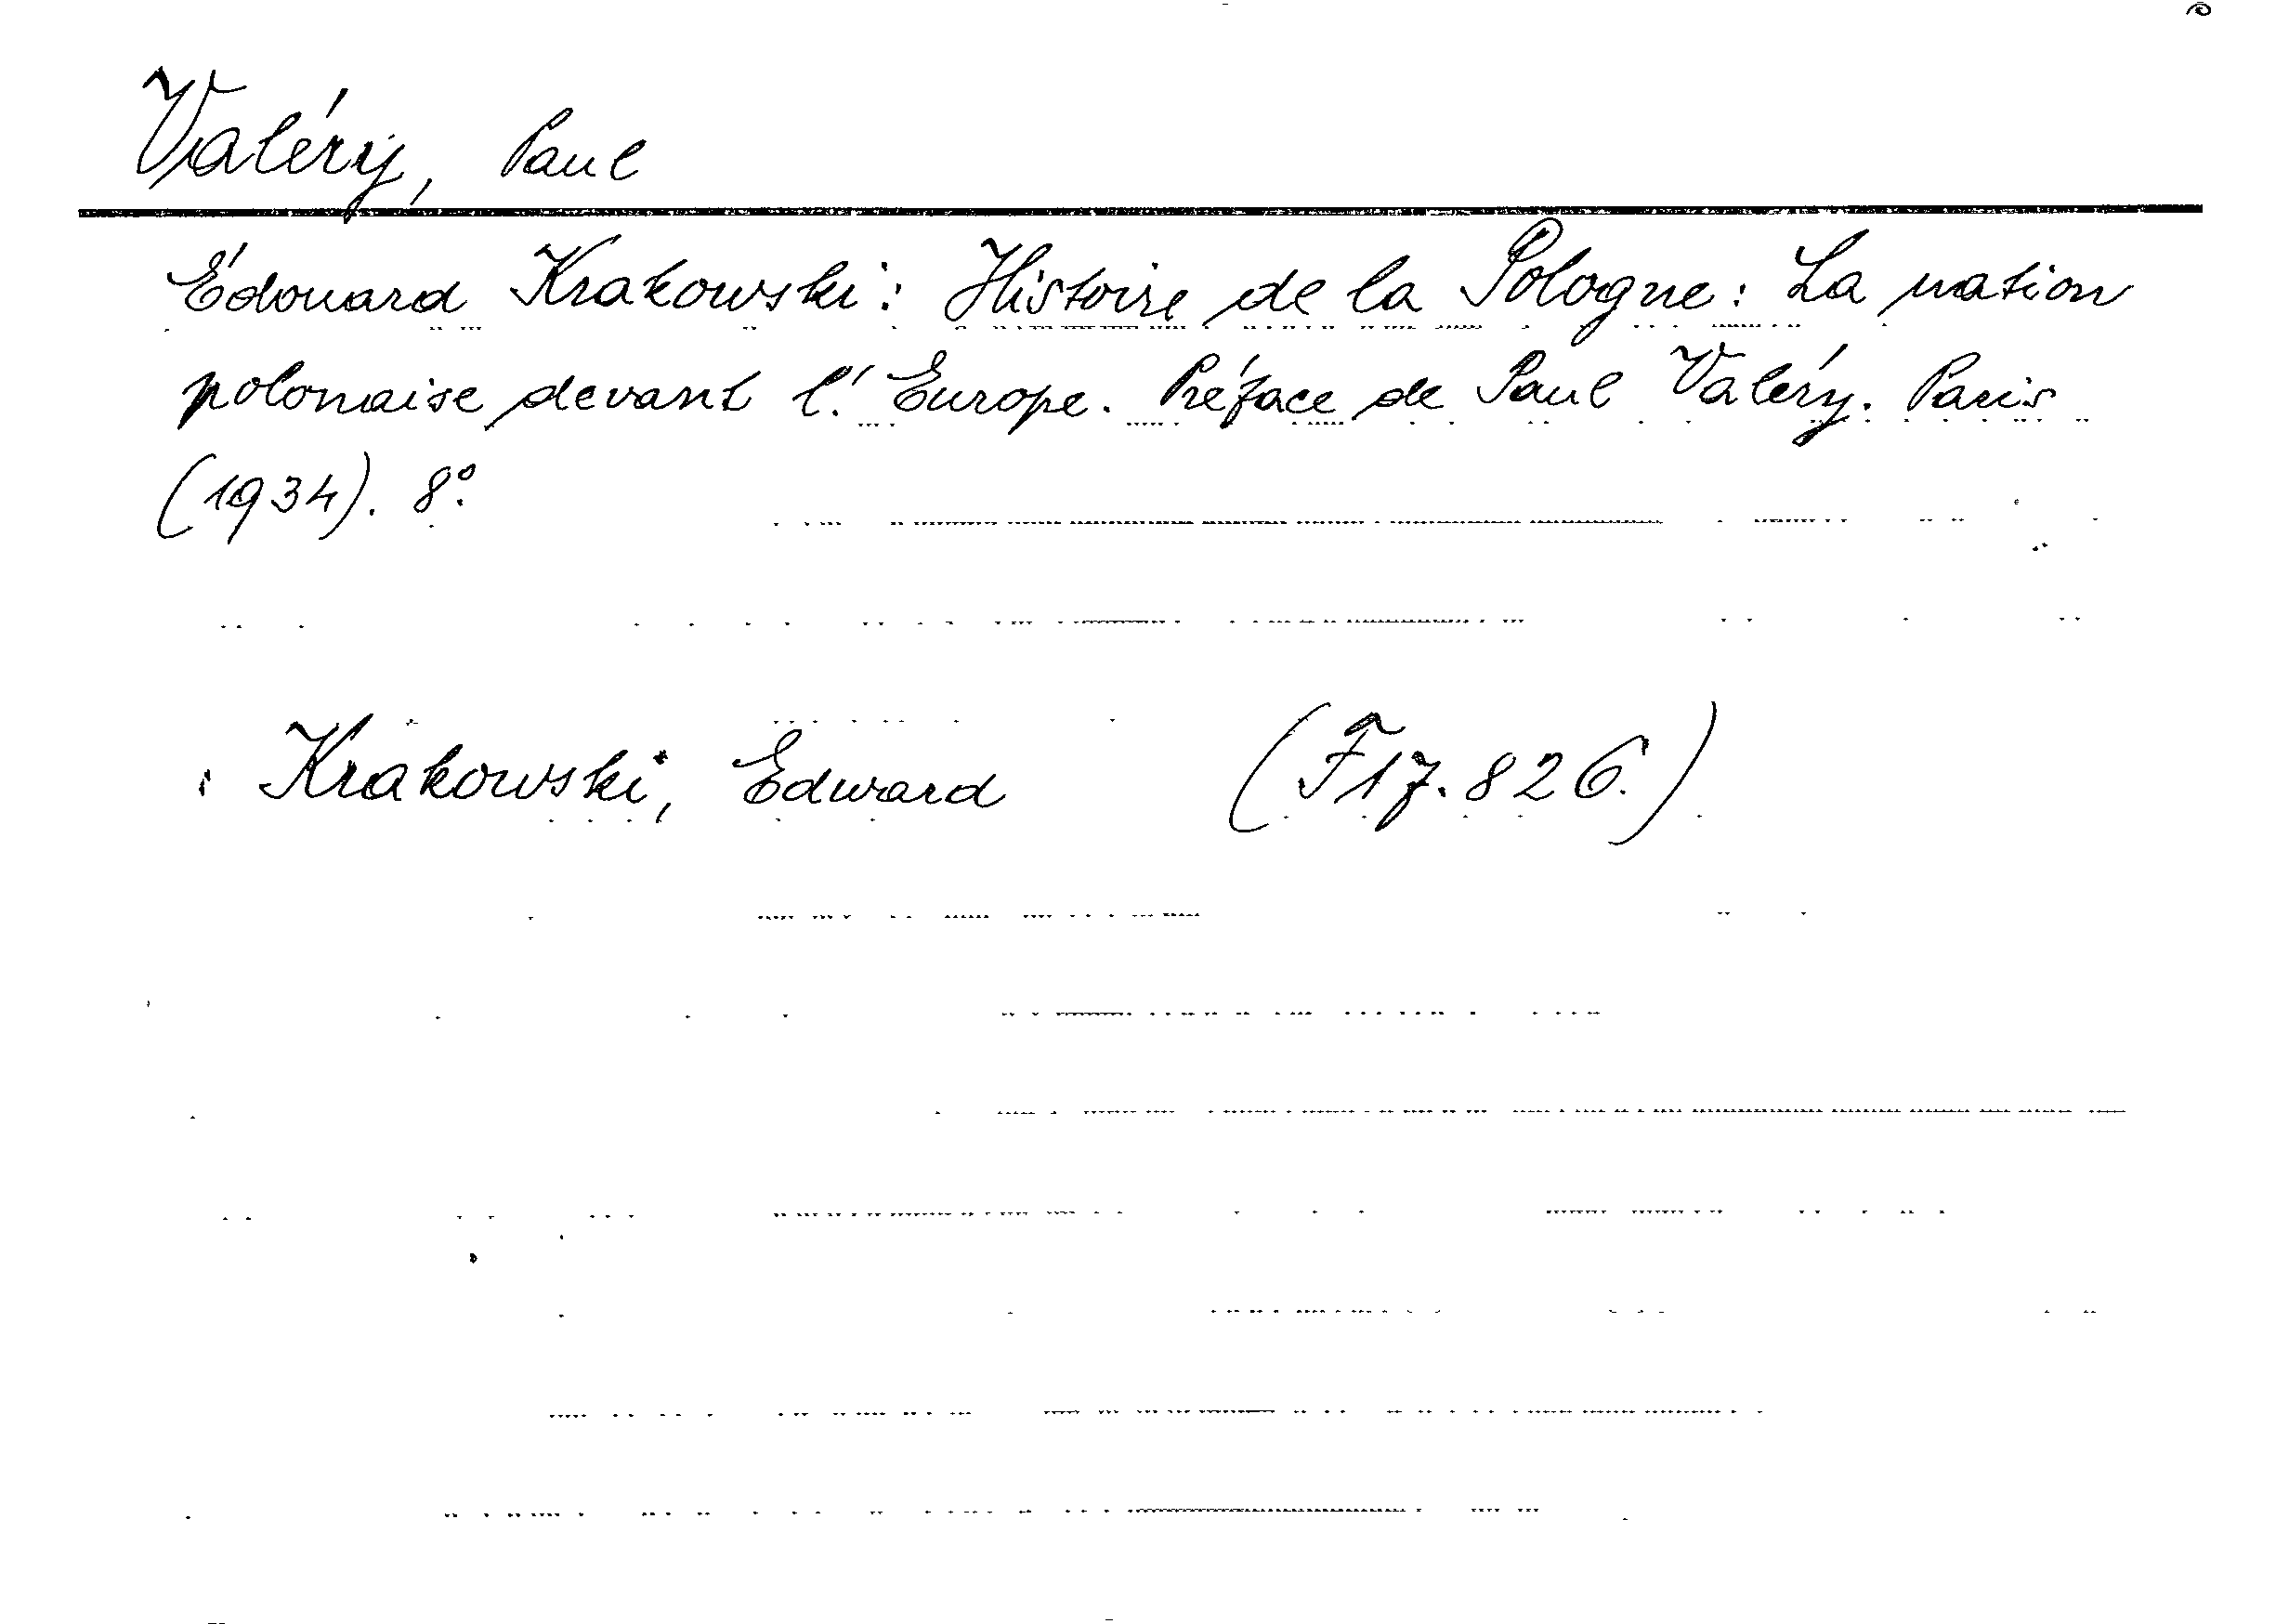 Valéry, Paul
Édouard Krakowski: Histoire de la Pologne: La nation
polonaise devant l'Europe. Préface de Paul Valéry. Paris
(1934). 8°.
Krakowski, Edward (F17.826.)